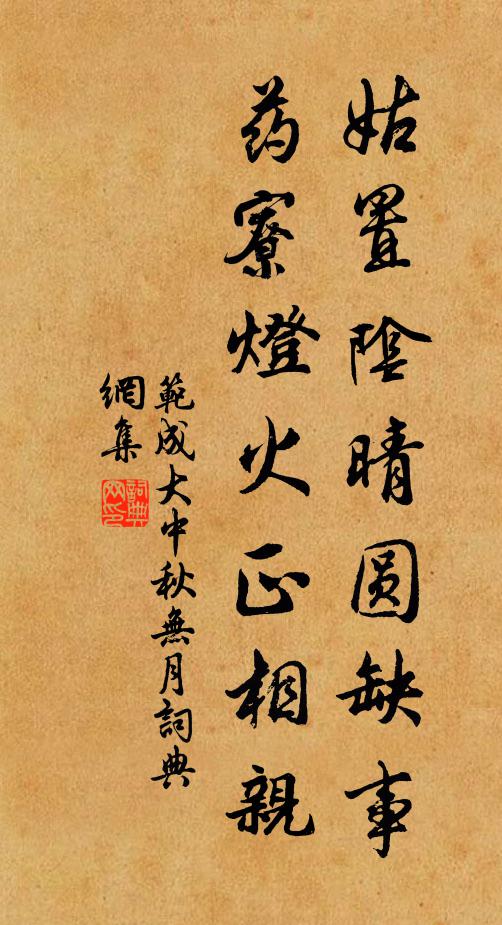 姑置陰晴圆缺事
药寮燈火正相親
範成大中秋無月詞典
網集
詞典
网印